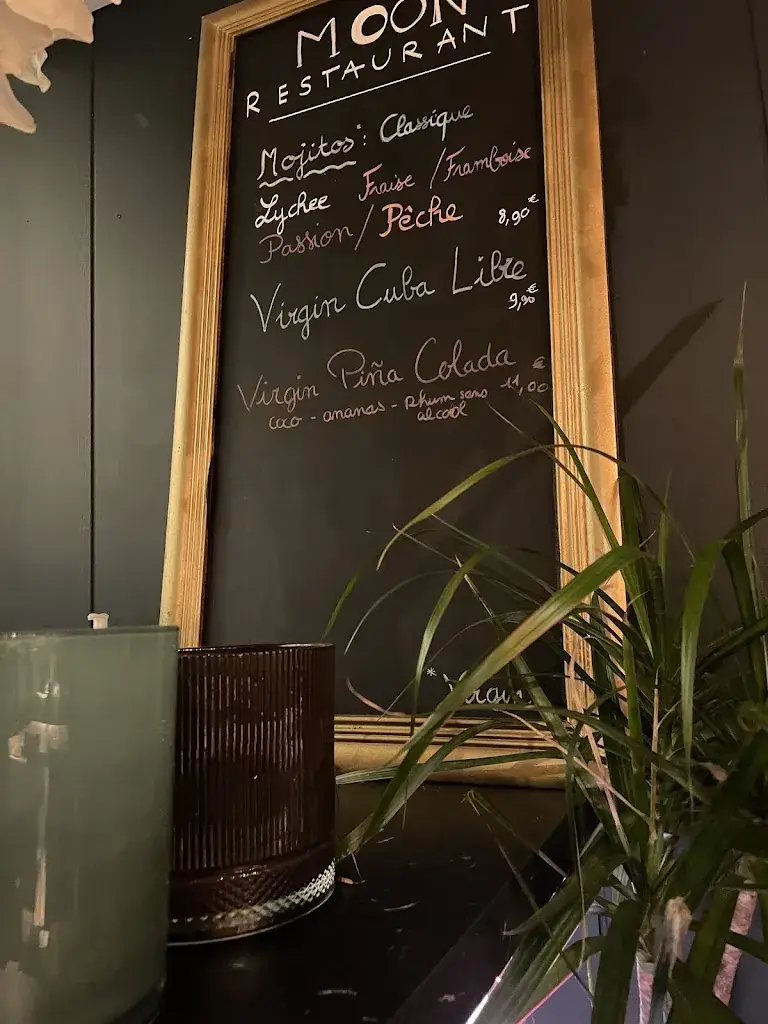 MOON
RESTAURANT
Mojitos*: Classique
Lychee Fraise / Framboise
Passion / Pêche 8,90€
Virgin Cuba Libre
9,90€
Virgin Piña Colada
coco - ananas - Rhum sans alcool 11,00€
* Virgin